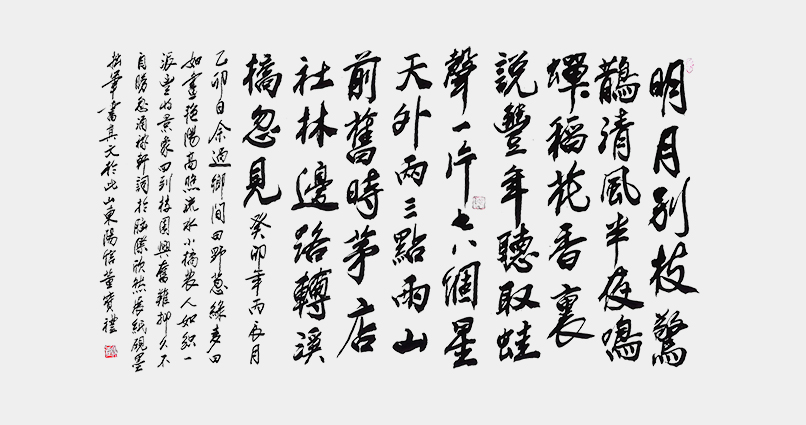 明月别枝驚
鵲清風半夜鳴
蟬稻花香裏
說豐年聽取蛙
聲一片七八個星
天外兩三點雨山
前舊時茅店
社林邊路轉溪
橋忽見 癸卯年丙辰月
乙卯日余過鄉間田野蔥綠麥田
如畫艷陽高照流水小橋農人如織一
派豐收景象回到校園興奮難抑久不
自勝忽誦稼軒詞於腦際欣然展紙硯墨
拙筆書其文於此山東陽信董寶禮